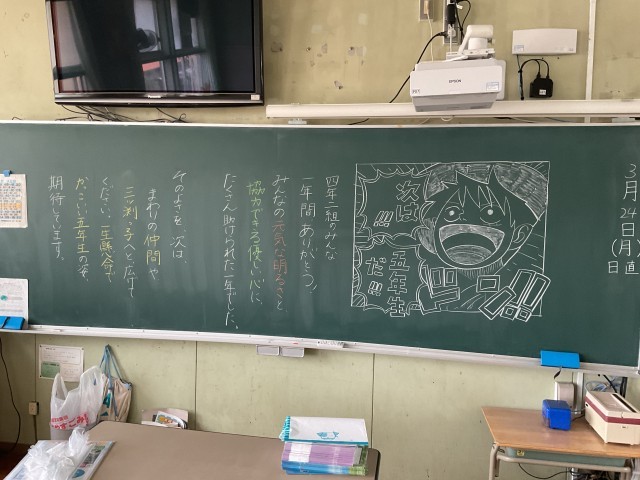 3月24日(月)
日直
次は!!!
五年生だ!!!
ドン!!
四年一組のみんな
一年間ありがとう!
みんなの元気な明るさと
協力できる優しい心に、
たくさん助けられた一年でした。
そのよさを、次は、
まわりの仲間や
三ツ渕っ子へと広げて
ください。一生懸命で
かっこいい五年生の姿、
期待しています。
EPSON